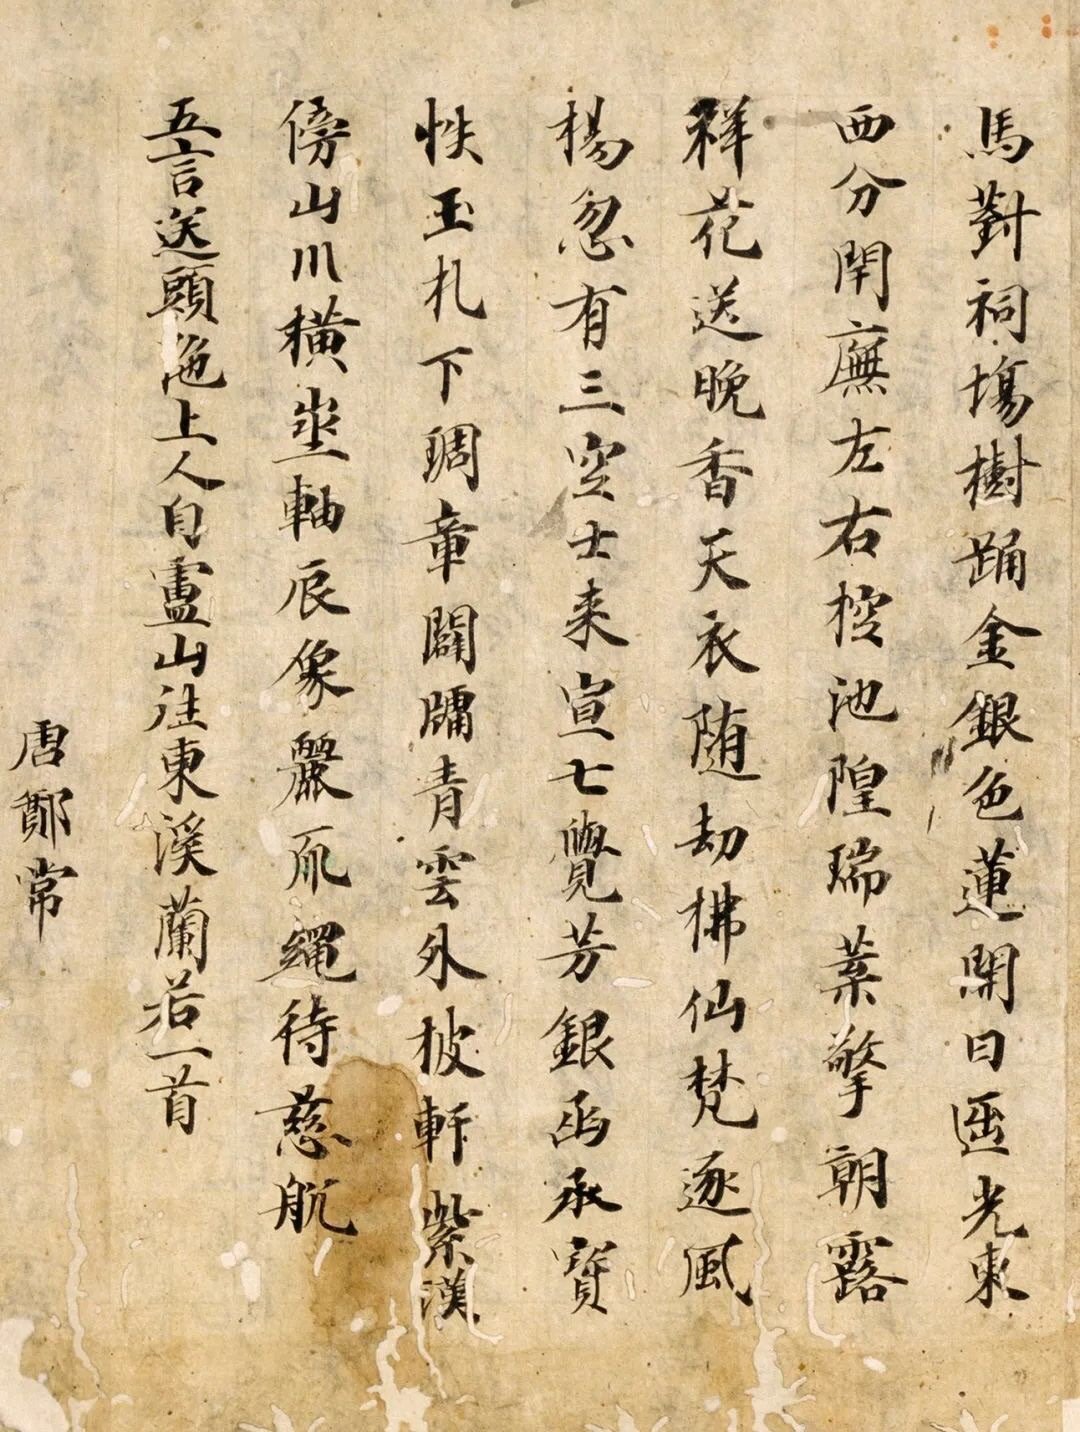 馬對祠塲樹踊金銀色蓮開日遊光東
西分閈廡左右控池隍瑞葉擎朝露
祥花送晚香天衣随劫拂仙梵逐風
楊忽有三空士来宣七覺芳銀函承寶
帙玉札下琱章闢牖青雲外披軒紫漢
傍山川橫坐軸辰像麗爪繩待慈航
五言送頭陁上人自廬山往東溪蘭若一首
唐鄭常